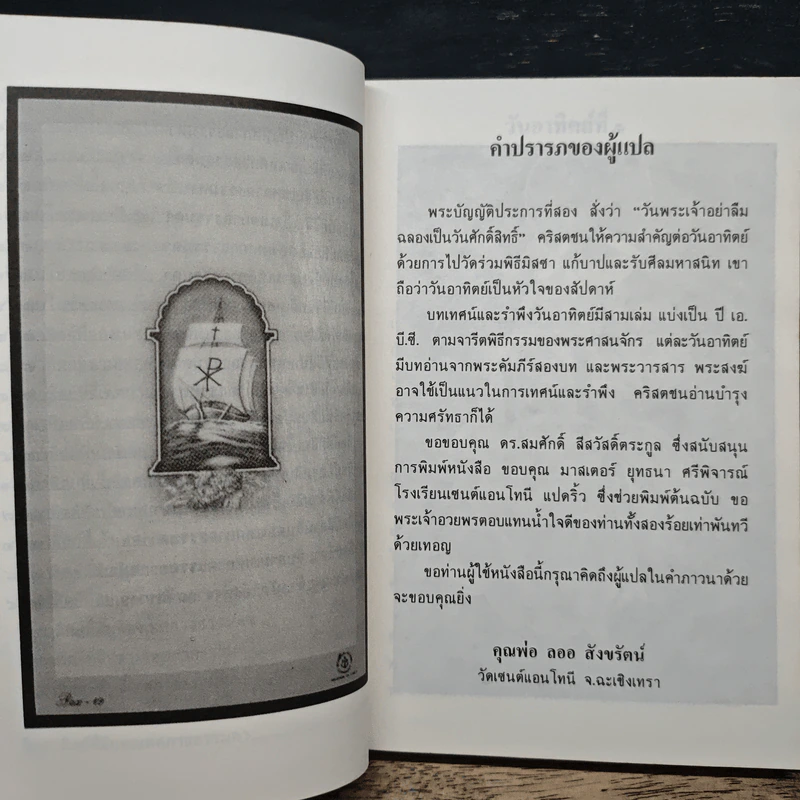 คำปรารภของผู้แปล
พระบัญญัติประการที่สอง สั่งว่า “วันพระเจ้าอย่าลืม
ฉลองเป็นวันศักดิ์สิทธิ์” คริสตชนให้ความสำคัญต่อวันอาทิตย์
ด้วยการไปวัดร่วมพิธีมิสซา แก้บาปและรับศีลมหาสนิท เขา
ถือว่าวันอาทิตย์เป็นหัวใจของสัปดาห์
บทเทศน์และรำพึงวันอาทิตย์มีสามเล่ม แบ่งเป็น ปี เอ.
บี.ซี. ตามจารีตพิธีกรรมของพระศาสนจักร แต่ละวันอาทิตย์
มีบทอ่านจากพระคัมภีร์สองบท และพระวารสาร พระสงฆ์
อาจใช้เป็นแนวในการเทศน์และรำพึง คริสตชนอ่านบำรุง
ความศรัทธาก็ได้
ขอขอบคุณ ดร.สมศักดิ์ ลีสวัสดิ์ตระกูล ซึ่งสนับสนุน
การพิมพ์หนังสือ ขอบคุณ มาสเตอร์ ยุทธนา ศรีพิจารณ์
โรงเรียนเซนต์แอนโทนี แปดริ้ว ซึ่งช่วยพิมพ์ต้นฉบับ ขอ
พระเจ้าอวยพรตอบแทนน้ำใจดีของท่านทั้งสองร้อยเท่าพันทวี
ด้วยเทอญ
ขอท่านผู้ใช้หนังสือนี้กรุณาคิดถึงผู้แปลในคำภาวนาด้วย
จะขอบคุณยิ่ง
คุณพ่อ ลออ สังขรัตน์
วัดเซนต์แอนโทนี จ.ฉะเชิงเทรา